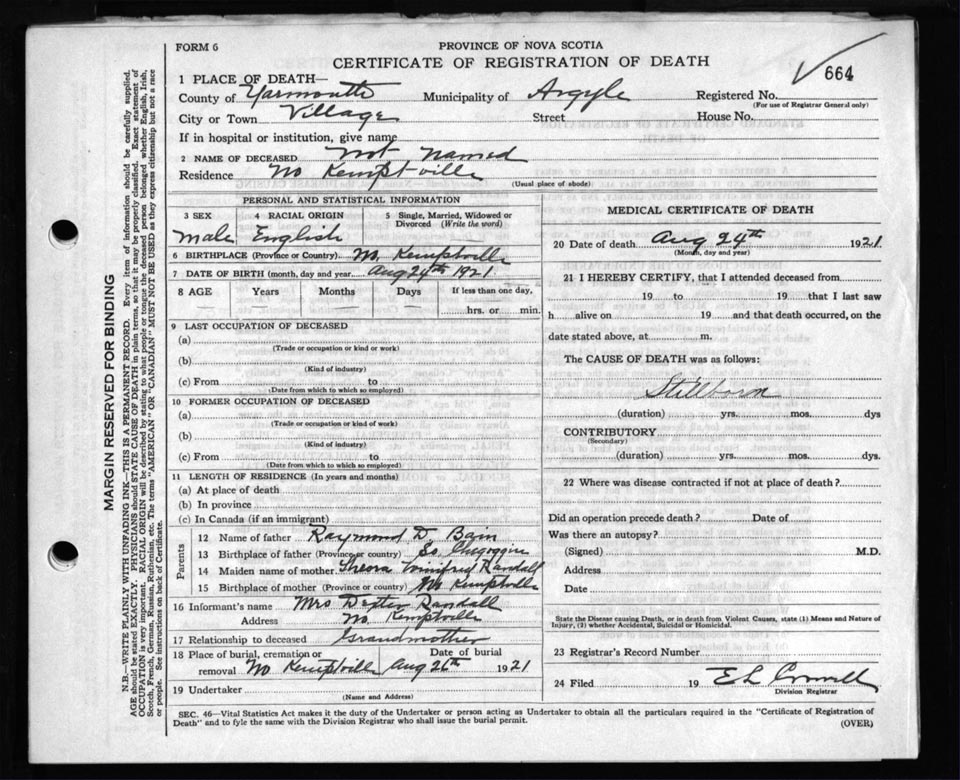 FORM 6
PROVINCE OF NOVA SCOTIA
CERTIFICATE OF REGISTRATION OF DEATH
664
1 PLACE OF DEATH—
County of Yarmouth Municipality of Argyle Registered No.
(For use of Registrar General only)
City or Town Village Street House No.
If in hospital or institution, give name
2 NAME OF DECEASED not named
Residence No Kemptville
(Usual place of abode)
PERSONAL AND STATISTICAL INFORMATION
3 SEX 4 RACIAL ORIGIN 5 Single, Married, Widowed or Divorced (Write the word)
Male English
6 BIRTHPLACE (Province or Country) No. Kemptville
7 DATE OF BIRTH (month, day and year Aug 24th 1921
8 AGE Years Months Days If less than one day,
hrs. or min.
9 LAST OCCUPATION OF DECEASED
(a)
(Trade or occupation or kind or work)
(b)
(Kind of industry)
(c) From to
(Date from which to which so employed)
10 FORMER OCCUPATION OF DECEASED
(a)
(Trade or occupation or kind of work)
(b)
(Kind of industry)
(c) From to
(Date from which to which so employed)
11 LENGTH OF RESIDENCE (In years and months)
(a) At place of death
(b) In province
(c) In Canada (if an immigrant)
Parents
12 Name of father Raymond D. Bain
13 Birthplace of father (Province or country) So.
14 Maiden name of mother Winifred Randall
15 Birthplace of mother (Province or country) No Kemptville
16 Informant's name Mrs Dexter Randall
Address No. Kemptville
17 Relationship to deceased Grandmother
18 Place of burial, cremation or removal No Kemptville Date of burial Aug 26th 1921
19 Undertaker
(Name and Address)
MEDICAL CERTIFICATE OF DEATH
20 Date of death Aug 24th 1921
(Month, day and year)
21 I HEREBY CERTIFY, that I attended deceased from
19 to 19 that I last saw
h alive on 19 and that death occurred, on the
date stated above, at m.
The CAUSE OF DEATH was as follows:
Stillborn
(duration) yrs. mos. dys
CONTRIBUTORY
(Secondary)
(duration) yrs. mos. dys.
22 Where was disease contracted if not at place of death?
Did an operation precede death? Date of
Was there an autopsy?
(Signed) M.D.
Address
Date
State the Disease causing Death, or in death from Violent Causes, state (1) Means and Nature of
Injury, (2) whether Accidental, Suicidal or Homicidal.
23 Registrar's Record Number
24 Filed 19 E L Crowell
Division Registrar
SEC. 46—Vital Statistics Act makes it the duty of the Undertaker or person acting as Undertaker to obtain all the particulars required in the "Certificate of Registration of
Death" and to fyle the same with the Division Registrar who shall issue the burial permit.
(OVER)
MARGIN RESERVED FOR BINDING
N.B.—WRITE PLAINLY WITH UNFADING INK—THIS IS A PERMANENT RECORD. Every item of information should be carefully supplied.
AGE should be stated EXACTLY. PHYSICIANS should STATE CAUSE OF DEATH in plain terms, so that it may be properly classified. Exact statement of
OCCUPATION is very important. RACIAL ORIGIN will be described by stating to what people or tongue the deceased person belonged whether English, Irish,
Scotch, French, German, Russian, Ruthenian, etc. The terms "AMERICAN" OR "CANADIAN" MUST NOT BE USED as they express citizenship but not a race
or people. See instructions on back of Certificate.